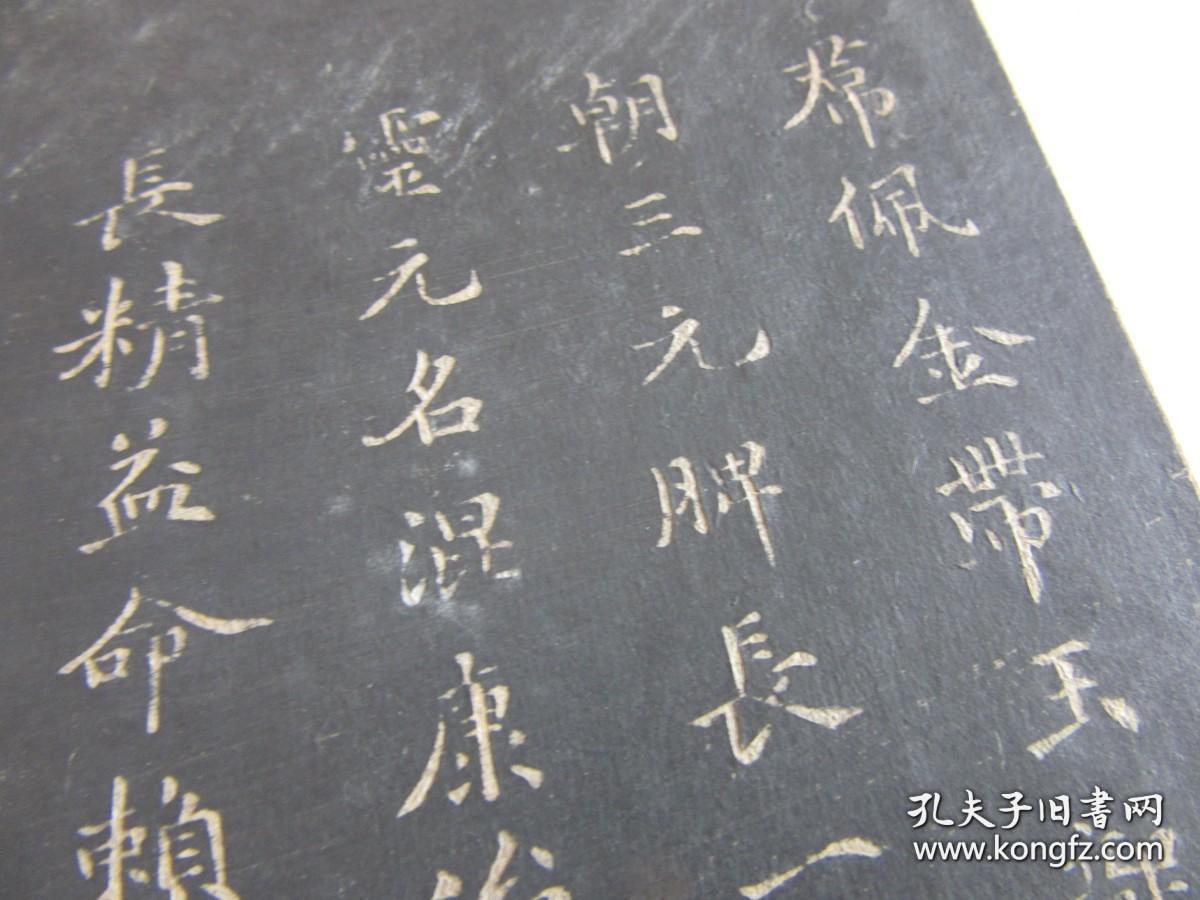 佩金帶玉
朝三元脾長一
靈元名混康治
長精益命賴
孔夫子旧书网
www.kongfz.com